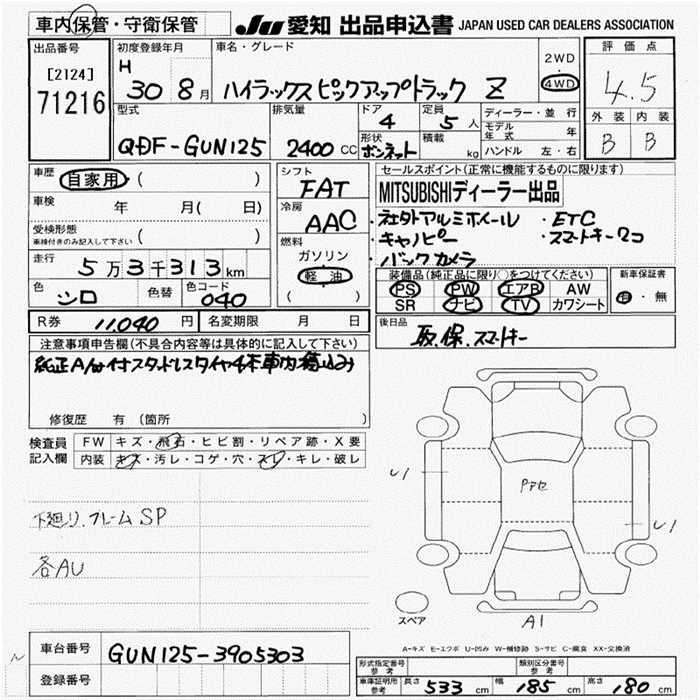 車内保管・守衛保管
JU 愛知 出品申込書 JAPAN USED CAR DEALERS ASSOCIATION
出品番号
[2124]
71216
初度登録年月
H 30 8月
車名・グレード
ハイラックスピックアップトラック Z
2WD
4WD
評価点
4.5
外装 内装
B B
型式
QDF-GUN125
排気量
2400 CC
ドア
4
定員
5 人
形状
ボンネット
積載
kg
ディーラー・並行
モデル年式 年
ハンドル 左・右
車歴 自家用 ( )
車検 年 月( 日)
受検形態
車検付きのみ記入して下さい ( )
走行 5万3千313km
色 シロ 色替 色コード 040
シフト
FAT
冷房
AAC
燃料
ガソリン
軽油
( )
セールスポイント(正常に機能するものに限ります)
MITSUBISHIディーラー出品
・社外アルミホイール ・ETC
・キャノピー ・スマートキー2コ
・バックカメラ
装備品(純正品に限り○をつけてください)
PS PW エアB AW
SR ナビ TV カワシート
新車保証書
有・無
R券 11,040 円 名変期限 月 日
後日品
取.保.スマートキー
注意事項申告欄(不具合内容等は具体的に記入して下さい)
純正A/W付スタッドレスタイヤ4本車内積込み
修復歴 有 (箇所 )
検査員記入欄
FW キズ・飛石・ヒビ割・リペア跡・X要
内装 キズ・汚レ・コゲ・穴・スレ・キレ・破レ
下廻り.フレームSP
各AU
U1
Pアセ
U1
スペア
A1
A-キズ E-エクボ U-凹み W-補修跡 S-サビ C-腐食 XX-交換済
車台番号 GUN125-3905303
登録番号
型式指定番号
参考
類別区分番号
参考
車庫証明用
参考
長さ 533 cm 幅 185 cm 高さ 180 cm